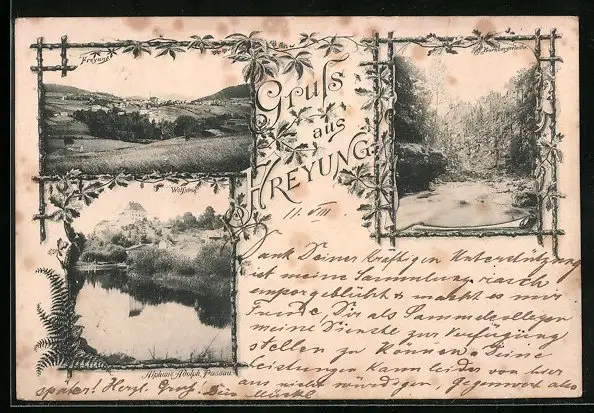 Freyung
Gruß
aus
FREYUNG
Wolfstein
Buchbergerleite
Alphons Adolph, Passau.
11. VIII.
Dank Deiner kräftigen Unterstützung
ist meine Sammlung rasch
emporgeblüht & macht es mir
Freude, Dir als Sammelkollegen
meine Dienste zur Verfügung
stellen zu können. Deine
Leistungen kann leider von hier
aus nicht würdigen, Gegenwert also
später! Herzl. Gruß! Dein